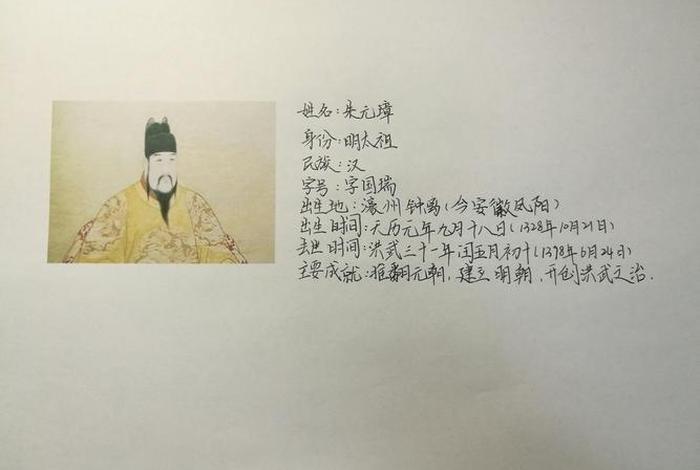 姓名:朱元璋
身份:明太祖
民族:汉
字号:字国瑞
出生地:濠州钟离(今安徽凤阳)
出生时间:天历元年九月十八日(1328年10月21日)
去世时间:洪武三十一年闰五月初十(1398年6月24日)
主要成就:推翻元朝,建立明朝,开创洪武之治.